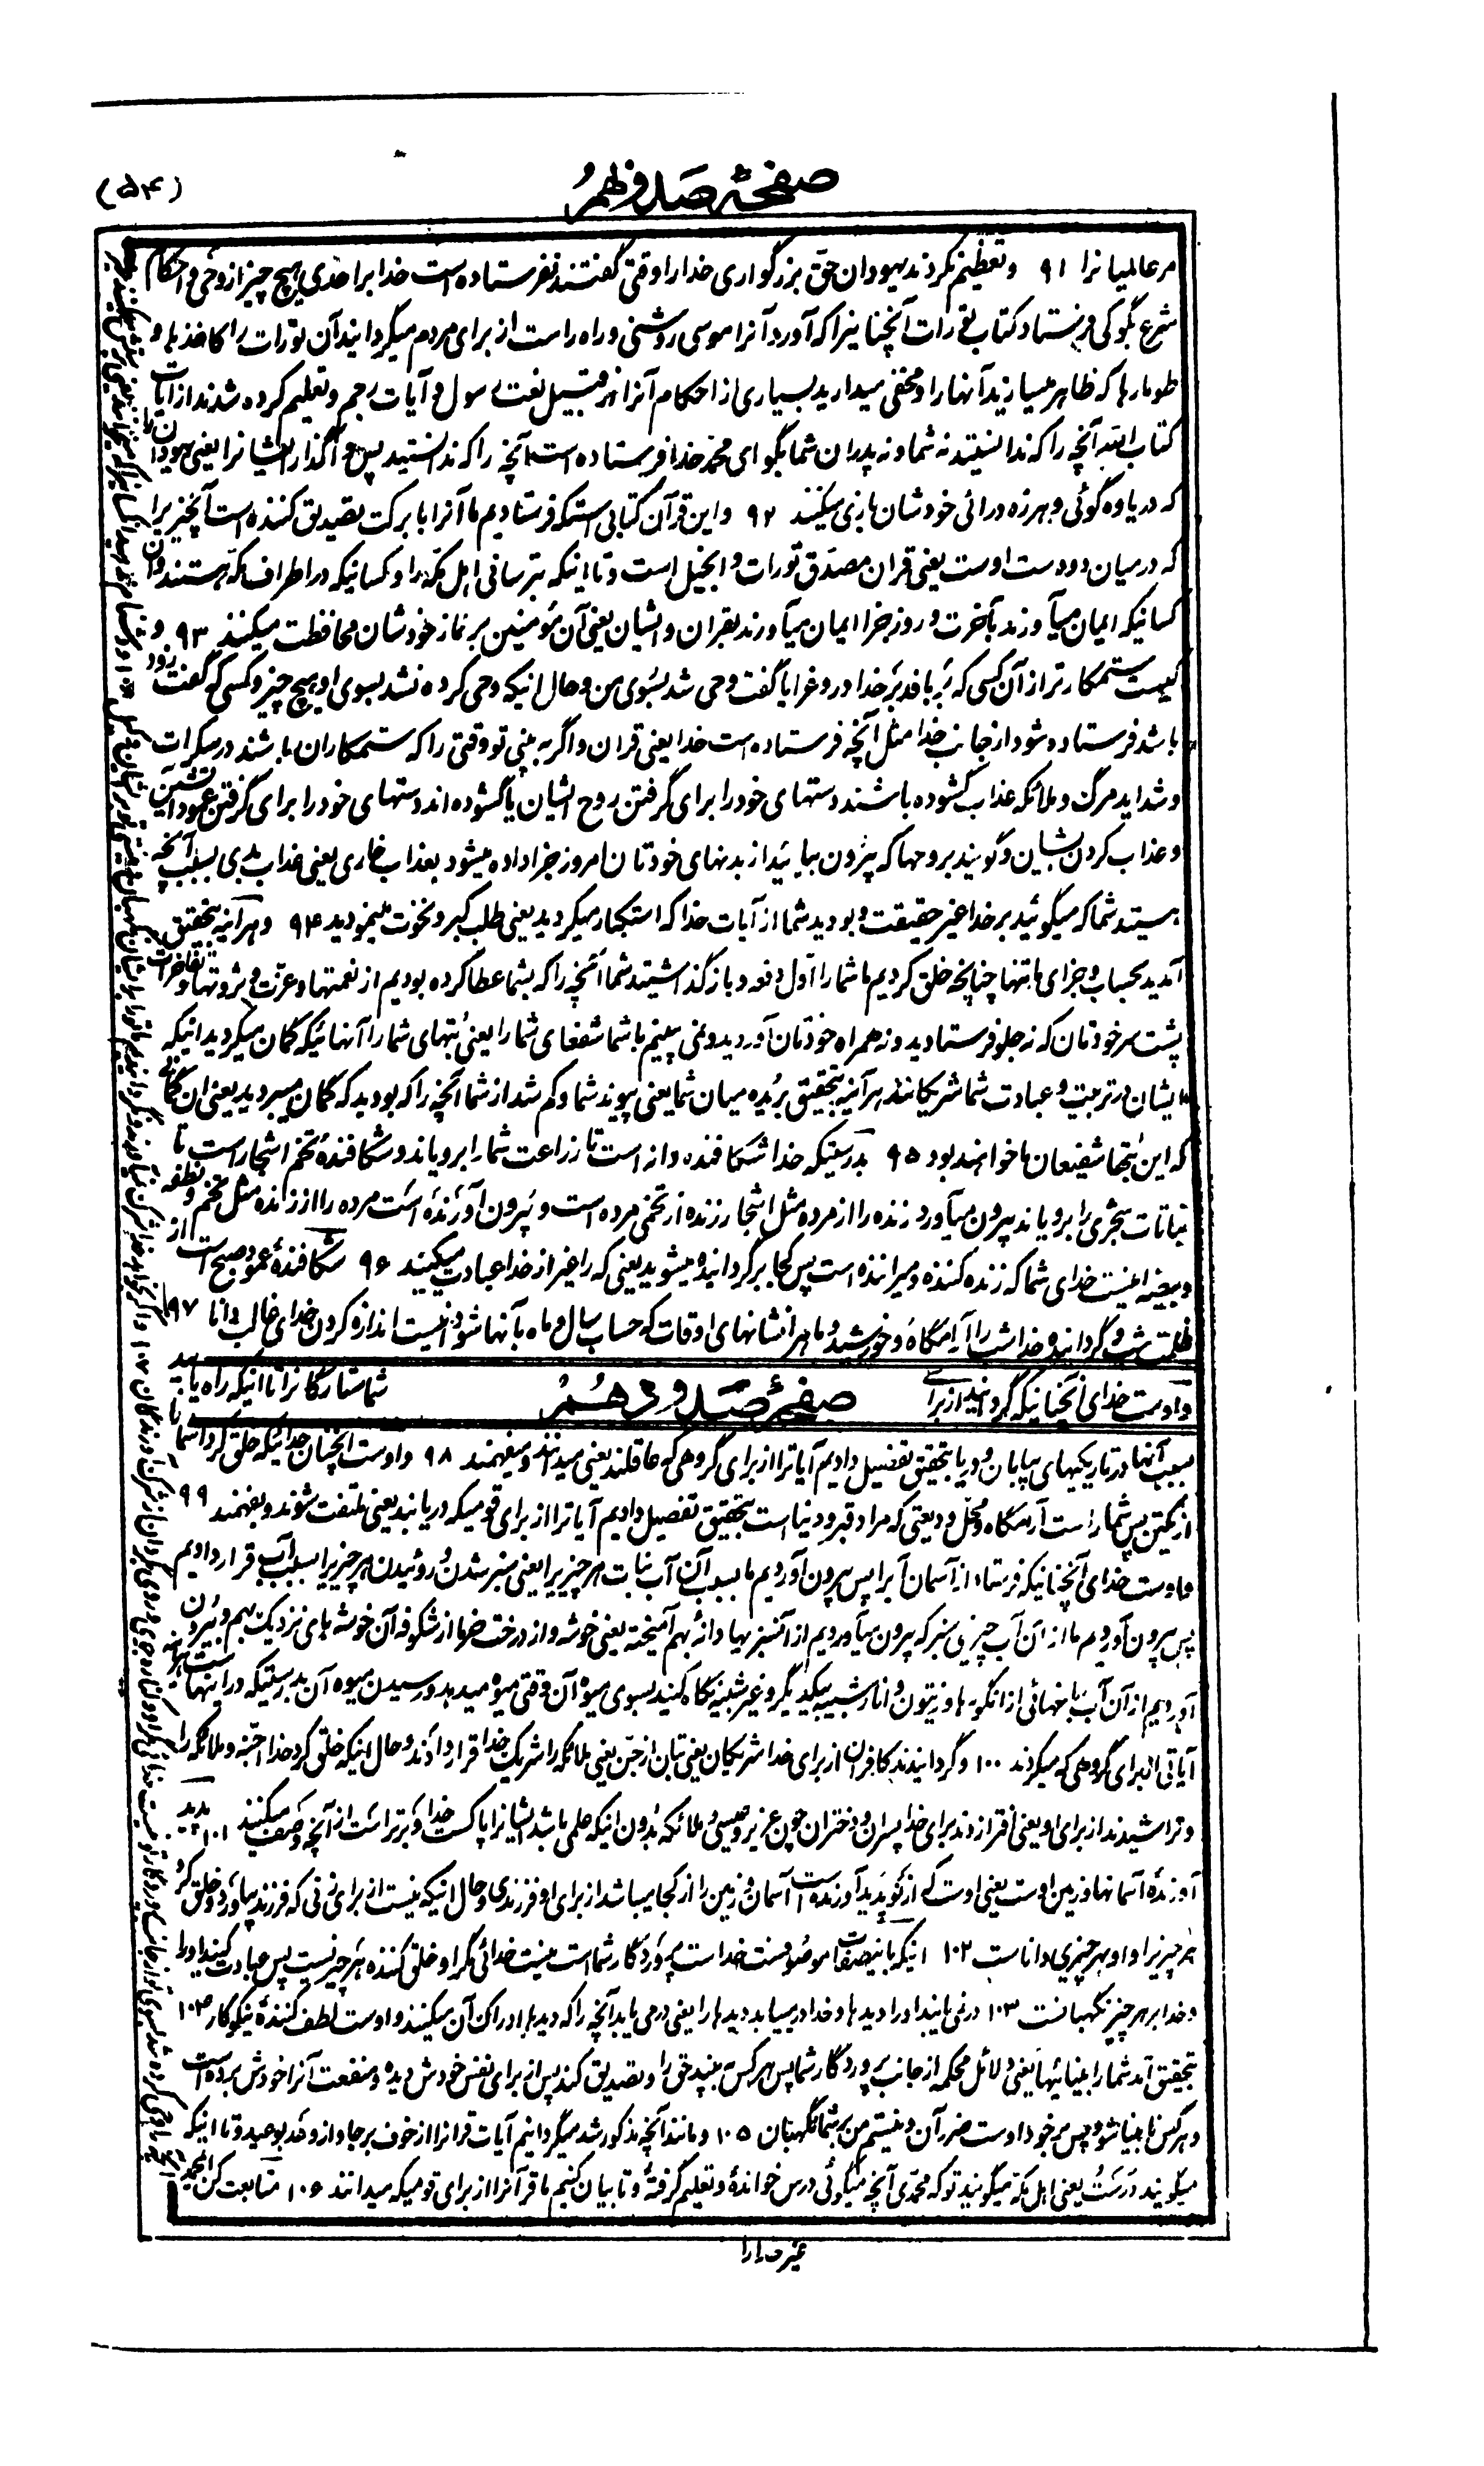 (۵۴)
صفحهٔ صد و نهم
مر عالمیانرا ۹۱ و تعظیم نکردند یهودان حق بزرگواری خدا را وقتی گفتند نفرستاده است خدا بر احدی هیچ چیز از وحی و احکام
شرع بگو کی فرستاد کتاب تورات آنچنانیرا که آورد آنرا موسی روشنی و راه راست از برای مردم میگردانید آن تورات را کاغذها و
طومارها که ظاهر میسازید آنها را و مخفی میدارید بسیاری از احکام آنرا از قبیل نعت رسول و آیات رجم و تعلیم کرده شدند از آیات
کتاب الله آنچه را که ندانستید نه شما و نه پدران شما بگو ای محمد خدا فرستاده است آنچه را که ندانستید پس واگذار ایشانرا یعنی یهودان را
که در یاوه گوئی و هرزه درائی خودشان بازی میکنند ۹۲ و این قرآن کتابی استکه فرستادیم ما آنرا با برکت تصدیق کننده است آنچیزیرا
که در میان دو دست اوست یعنی قران مصدق تورات و انجیل است و تا اینکه بترسانی اهل مکه را و کسانیکه در اطراف مکه هستند و آن
کسانیکه ایمان میآورند بآخرت و روز جزا ایمان میآورند بقران و ایشان یعنی آن مؤمنین بر نماز خودشان محافظت میکنند ۹۳ و
کیست ستمکارتر از آن کسی که بر بافد بر خدا دروغ را یا گفت وحی شد بسوی من و حال انیکه وحی کرده نشد بسوی او هیچ چیز و کسی که گفت زود
باشد فرستاده شود از جانب خدا مثل آنچه فرستاده است خدا یعنی قران و اگر به بینی تو وقتی را که ستمکاران باشند در سکرات
و شداید مرگ و ملائکه عذاب گشوده باشند دستهای خود را برای گرفتن روح ایشان یا گشوده اند دستهای خود را برای گرفتن عمود آتشین
و عذاب کردن بشان و گویند بروحها که بیرون بیائید از بدنهای خودتان امروز جزا داده میشود بعذاب خاری یعنی عذاب بدی بسبب آنچه
بستید شما که میگوئید بر خدا غیر حقیقت و بودید شما از آیات خدا که استکبار میکردید یعنی طلب کبر و نخوت مینمودید ۹۴ و هرآینه بتحقیق
آمدید بحساب و جزای ما تنها چنانچه خلق کردیم ما شما را اول دفعه و بازگذاشتید شما آنچه را که بشما عطا کرده بودیم از نعمتها و عزت و ثروتها و تفاخرات
پشت سر خودتان که نه جلو فرستادید و نه همراه خودتان آوردید و نمی بینیم با شما شفعای شما را یعنی بتهای شما را آنهائیکه گمان میکردید انیکه
ایشان در تربیت و عبادت شما شریکانند هرآینه بتحقیق بریده میان شما یعنی پیوند شما و گم شد از شما آنچه را که بودید که گمان میبردید یعنی ان گمان
که این بتها شفیعان ما خواهند بود ۹۵ بدرستیکه خدا شکافنده دانه است تا زراعت شما را برویاند و شکافندهٔ تخم اشجار است تا
نباتات شجری را برویاند بیرون میآورد زنده را از مرده مثل اشجار زنده از تخمی مرده است و بیرون آورنده است مرده را از زنده مثل تخم و نطفه
و بیضه اینست خدای شما که زنده کننده و میراننده است پس کجا برگردانیده میشوید یعنی که را غیر از خدا عبادت میکنید ۹۶ شکافندهٔ عمود صبح است از
ظلمت شب و گردانیده خدا شب را آرامگاه و خورشید و ماه را نشانهای اوقات که حساب سال و ماه بآنها شود اینست اندازه کردن خدای غالب دانا ۹۷
و اوست خدای آنچنانیکه گردانید از برای
صفحهٔ صد و دهم
شما ستارگانرا تا انیکه راه یابید
بسبب آنها در تاریکیهای بیابان و دریا بتحقیق تفضیل دادیم آیاترا از برای گروهی که عاقلند یعنی میدانند و میفهمند ۹۸ و اوست آنچنان خدائیکه خلق کرد شما را
از یکتن پس شما راست آرامگاه و محل ودیعتی که مراد قبر و دنیا است بتحقیق تفصیل دادیم آیاترا از برای قومیکه دریابند یعنی ملتفت شوند و بفهمند ۹۹
و اوست خدای آنچنانیکه فرستاد از آسمان آبرا پس بیرون آوردیم ما بسبب آن آب نبات هر چیزیرا یعنی سبز شدن و روئیدن هر چیزیرا بسبب آب قرار دادیم
پس بیرون آوردیم ما از ان آب چیزی سبز که بیرون میآوردیم از آنسبزیها دانهٔ بهم آمیخته یعنی خوشه و از درخت خرما از شکوفه آن خوشه های نزدیک بهم و بیرون
آوردیم از آن آب باغهائی از انگورها و زیتون و انار شبیه بیکدیگر و غیر شبیه نگاه کنید بسوی میوهٔ آن وقتی میوه میدهد و رسیدن میوه آن بدرستیکه در اینها هرآینه
آیاتی است برای گروهی که میگردند ۱۰۰ و گردانیدند کافران از برای خدا شریکان یعنی بتان از جن یعنی ملائکه را شریک خدا قرار دادند و حال انیکه خلق کرد خدا اجنه و ملائکه را
و تراشیدند از برای او یعنی افترا زدند برای خدا پسران و دختران چون عزیر و عیسی و ملائکه بدون انیکه علمی باشد ایشانرا پاکست خدا و برتر است از آنچه وصف میکنند ۱۰۱ پدید
آورندهٔ آسمانها و زمین اوست یعنی اوست که از نو پدید آورنده است آسمان و زمین را از کجا میباشد از برای او فرزندی و حال انیکه نیست از برای زنی که فرزند بیاورد و خلق کرد
هر چیزیرا و او بهر چیزی داناست ۱۰۲ انیکه باینصفات موصوفست خداست پروردگار شما است نیست خدائی مگر او خلق کننده هر چیز نیست پس عبادت کنید او را
و خدا بر هر چیز نگهبانست ۱۰۳ در نمی یابند او را دیدها و خدا در مییابد دیدها را یعنی درمی یابد آنچه را که دیدها ادراک آن میکنند و اوست لطف کنندهٔ نیکوکار ۱۰۴
بتحقیق آمد شما را بینائیها یعنی دلائل محکمه از جانب پروردگار شما پس هر کس به بیند حق را و تصدیق کند پس از برای نفس خودش دیده و منفعت آنرا خودش برده است
و هر کس نابینا شود پس بر خود اوست ضرر آن و نیستم من بر شما نگهبان ۱۰۵ و مانند آنچه مذکور شد میگردانیم آیات قرانرا از خوف برجا و از وعد بوعید و تا انیکه
میگویند درست یعنی اهل مکه میگویند تو که محمدی آنچه میگوئی درس خواندهٔ و تعلیم گرفتهٔ و تا بیان کنیم ما قرآنرا از برای قومیکه میدانند ۱۰۶ متابعت کن ایمحمد